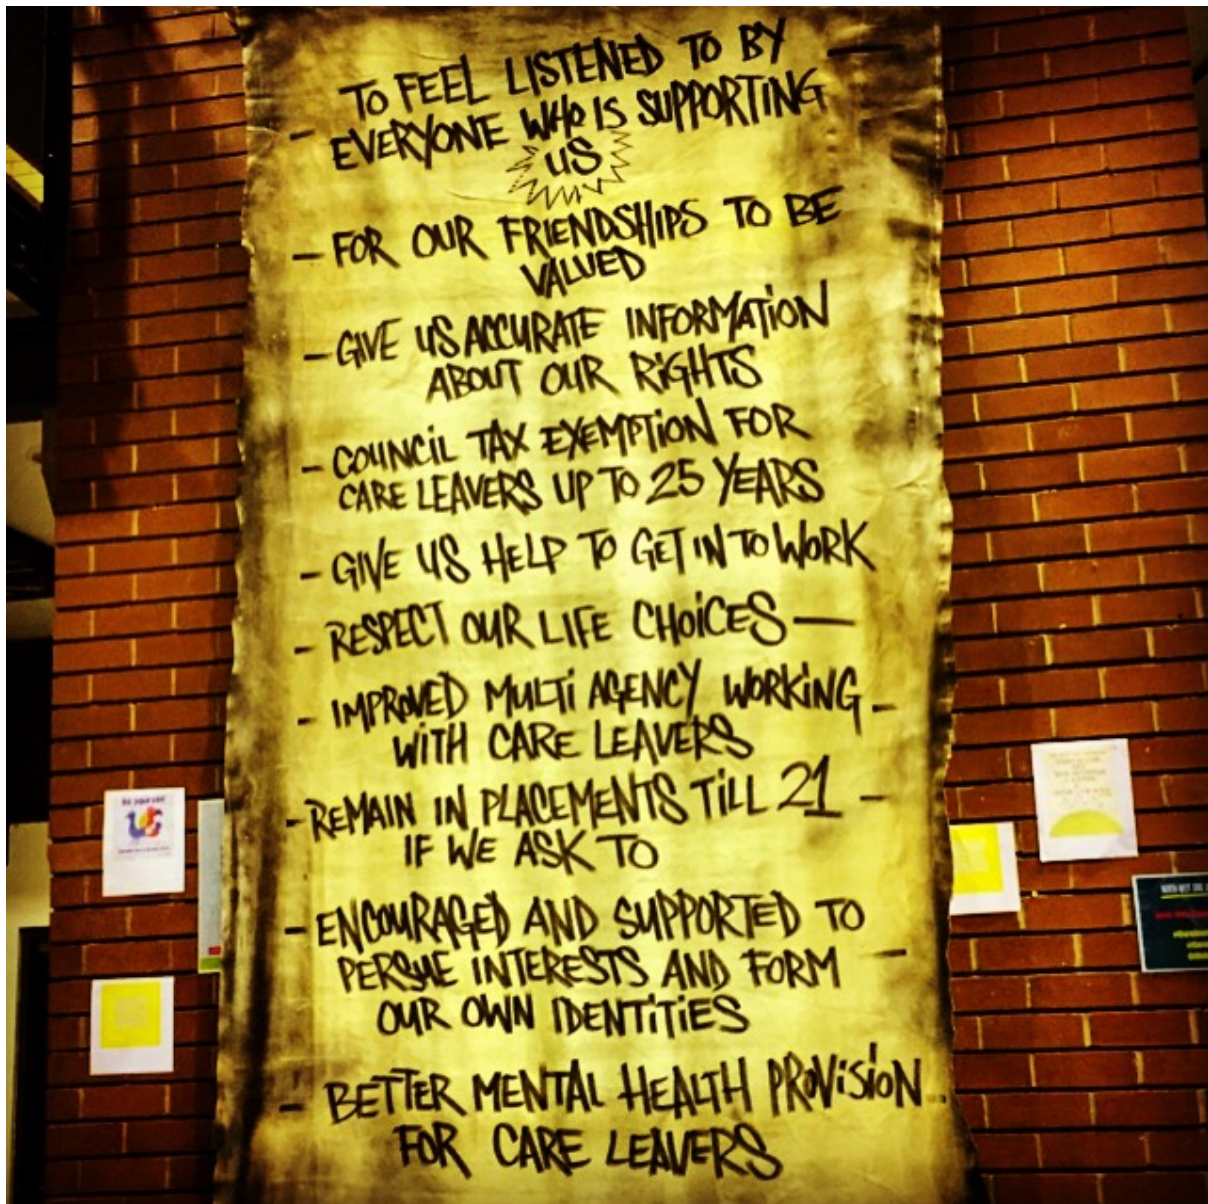 TO FEEL LISTENED TO BY
- EVERYONE WHO IS SUPPORTING
US
- FOR OUR FRIENDSHIPS TO BE
VALUED
- GIVE US ACCURATE INFORMATION
ABOUT OUR RIGHTS
- COUNCIL TAX EXEMPTION FOR
CARE LEAVERS UP TO 25 YEARS
- GIVE US HELP TO GET IN TO WORK
- RESPECT OUR LIFE CHOICES -
- IMPROVED MULTI AGENCY WORKING -
WITH CARE LEAVERS
- REMAIN IN PLACEMENTS TILL 21 -
IF WE ASK TO
- ENCOURAGED AND SUPPORTED TO
PERSUE INTERESTS AND FORM -
OUR OWN IDENTITIES
- BETTER MENTAL HEALTH PROVISION..
FOR CARE LEAVERS